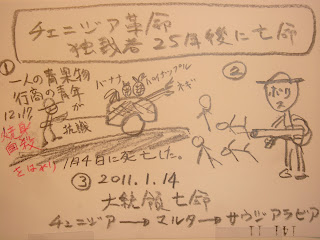 チェニジア革命
独裁者25年後に亡命
①
一人の青果物
行商の青年が
12.17
焼身
自殺
をはかり
抗議
バーナナ
パイナップル
ネギ
1月4日に死亡した。
②
ポリス
③ 2011.1.14
大統領亡命
チュニジア→マルタ→サウジアラビア